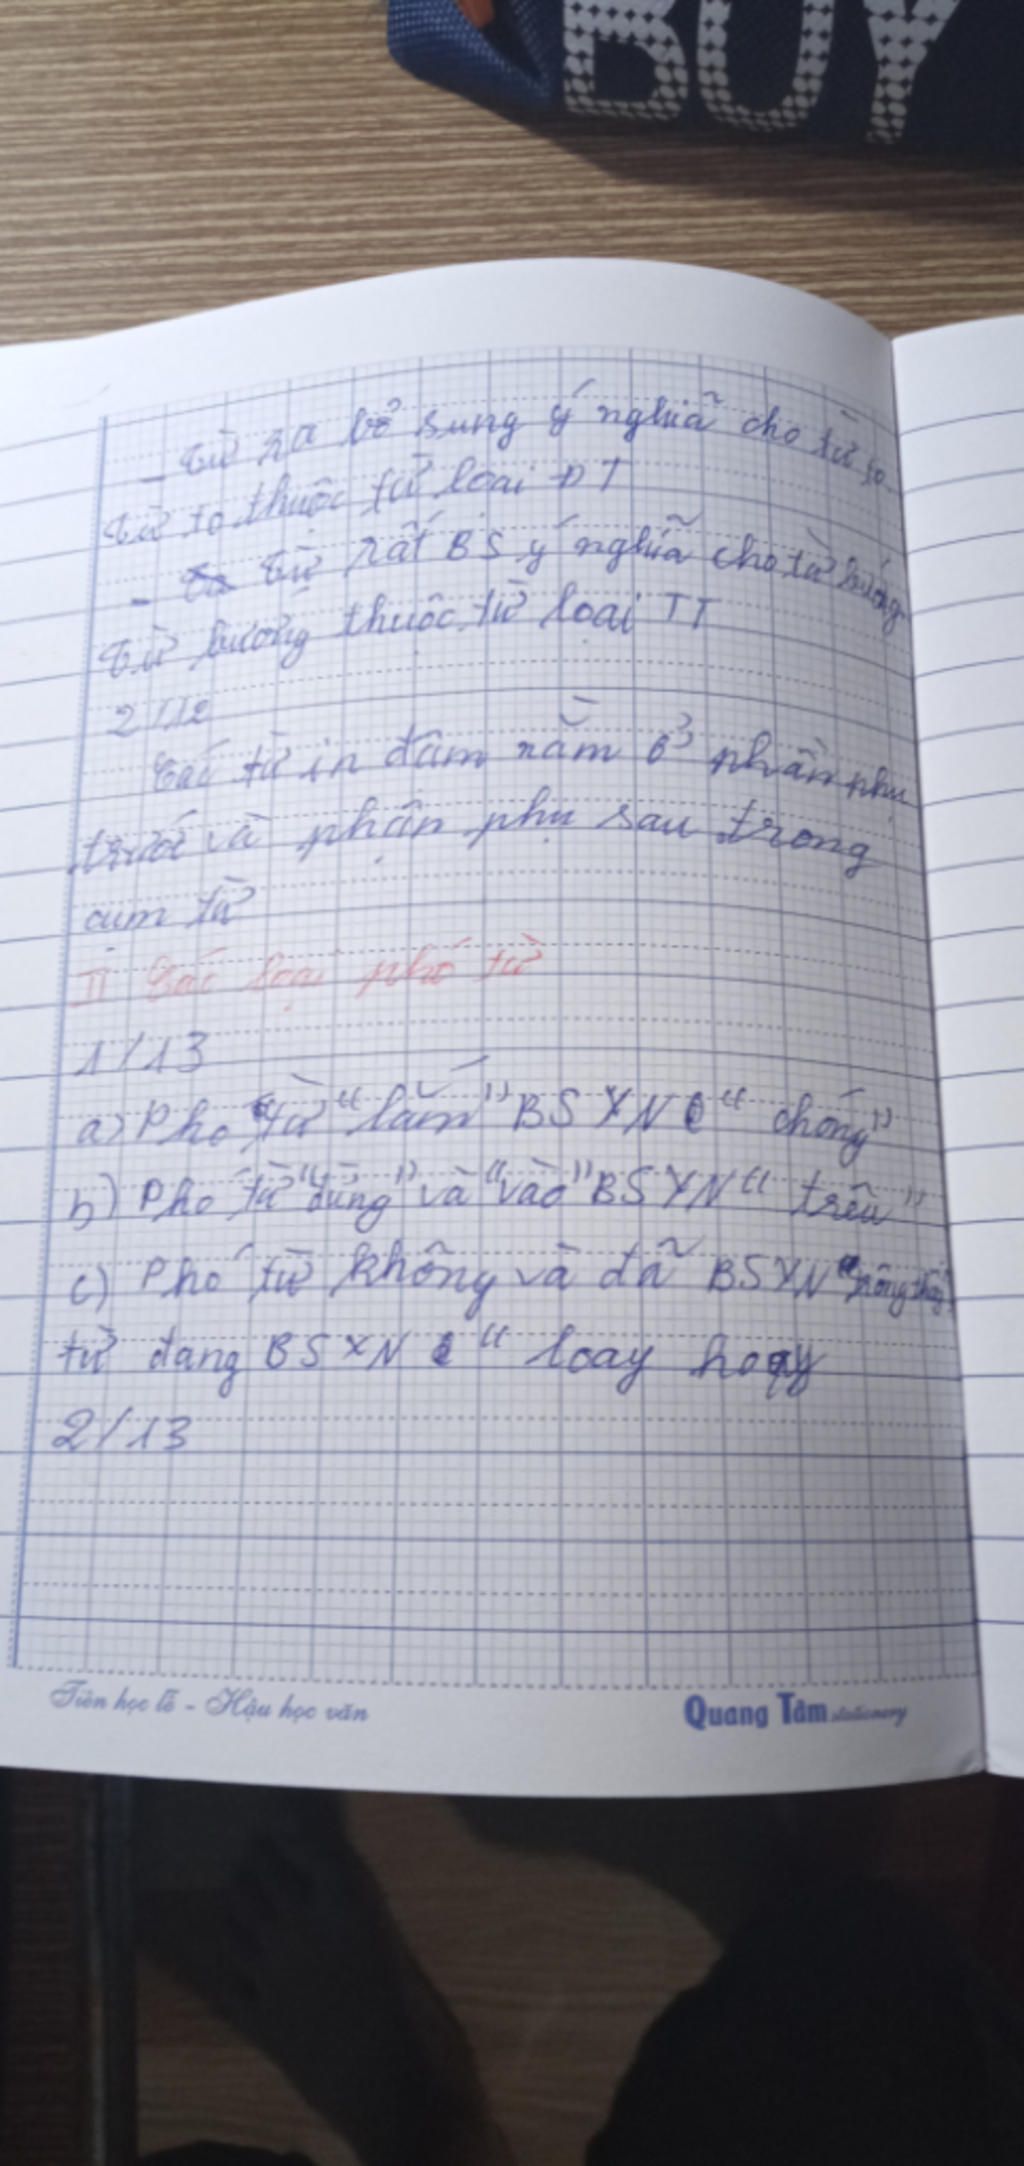 BUY
- Từ ra bổ sung ý nghiã cho từ to
Từ to thuộc từ loại ĐT
- Từ rất BS ý nghiã cho từ bướng
Từ bướng thuộc từ loại TT
2/12
Các từ in đâm nằm ở phần phụ
trước và phần phụ sau trong
cụm từ
II Các loại phó từ
1/13
a) Phó từ "lắm" BSYN "chóng"
b) Phó từ "đừng" và "vào" BSYN "trêu"
c) Phó từ không và đã BSYN "trông thấy
từ đang BSYN " loay hoay
2/13
Tiên học lễ - Hậu học văn
Quang Tâm stationery